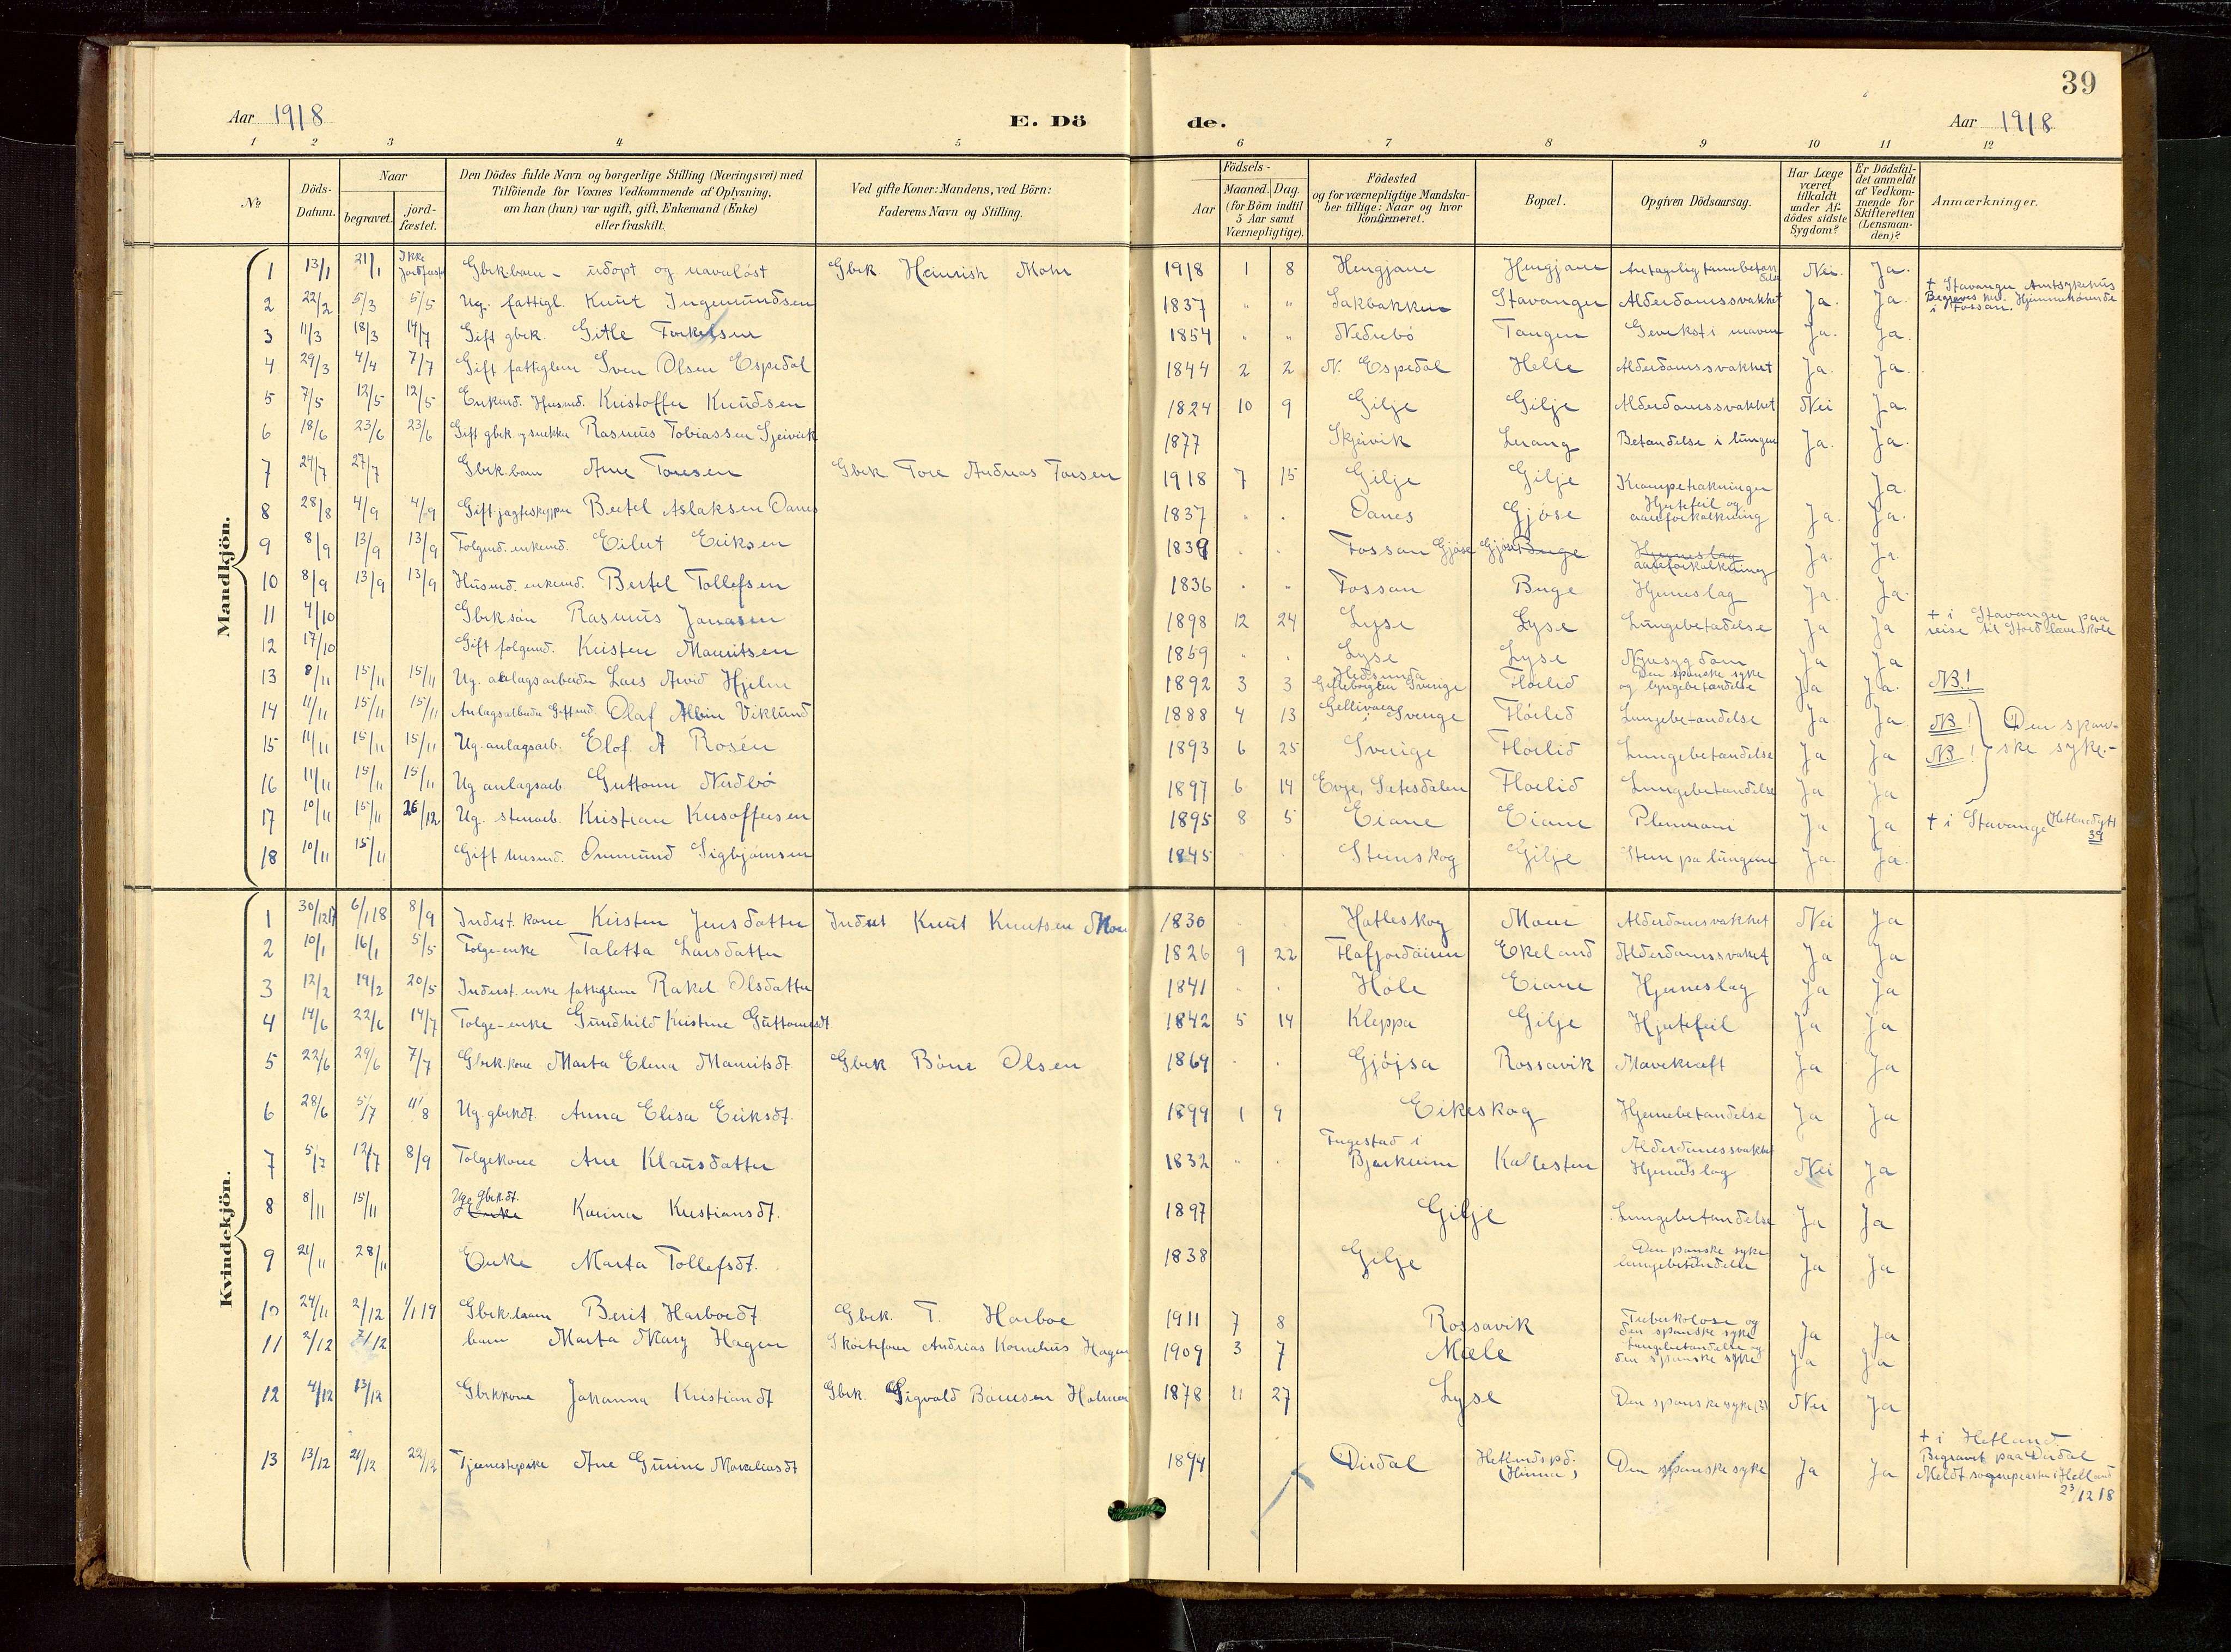 39
Aar 1918 E. Dö de. Aar 1918
1 2 3 4 5 6 7 8 9 10 11 12
No
Döds-Datum.
Naar
begravet.
jord-fæstet.
Den Dödes fulde Navn og borgerlige Stilling (Næringsvei) med
Tilföiende for Voxnes Vedkommende af Oplysning,
om han (hun) var ugift, gift, Enkemand (Enke)
eller fraskilt.
Ved gifte Koner: Mandens, ved Börn:
Faderens Navn og Stilling.
Födsels-
Aar
Maaned. Dag.
(for Börn indtil
5 Aar samt
Værnepligtige).
Födested
og for værnepligtige Mandska-
ber tillige: Naar og hvor
konfirmeret.
Bopæl.
Opgiven Dödsaarsag.
Har Læge
været
tilkaldt
under Af-
dödes sidste
Sygdom?
Er Dödsfal-
det anmeldt
af Vedkom-
mende for
Skifteretten
(Lensman-
den)?
Anmærkninger.
Mandkjön.
1 13/1 21/1 Ikke Jordfæstet Gbrk.barn - udøpt og navnløst Gbrk. Heinrish Mohr 1918 1 8 Hengjane Hengjane Nei. Ja.
2 22/2 5/3 5/5 Ug. fattigl. Knut Ingemundsen 1837 " " Bakbakken Stavanger Alderdomssvakhet Ja. Ja. + Stavanger Amtsykehus Begraves
i Fossan.
3 11/3 18/3 14/7 Gift gbrk. Gitle Torkelsen 1854 " " Nedrebö Tangen Gevekst i maven Ja. Ja.
4 29/3 4/4 7/7 Gift fattiglem Sven Olsen Espedal 1844 2 2 N. Espedal Helle Alderdomssvakhet Ja. Ja.
5 7/5 12/5 12/5 Enkmd. Husmd. Kristoffer Knudsen 1824 10 9 Gilje Gilje Alderdomssvakhet Nei Ja.
6 18/6 23/6 23/6 Gift gbrk. og snekker Rasmus Tobiassen Sjeivik 1877 Skjeivik Lerang Betændelse i lungen Ja. Ja.
7 24/7 27/7 Gbrk.barn Arne Toresen Gbrk. Tore Andreas Torsen 1918 7 15 Gilje Gilje Krampetrækninger Ja.
8 28/8 4/9 4/9 Gift jagteskipper Bertel Aslaksen Oanes 1837 " " Oanes Gjøse Hjertefeil og aareforkalkning Ja. Ja.
9 8/9 13/9 13/9 Folgmd. enkemd. Eilert Eriksen 1839 " " Fossan Gjøse Gjøse Berge Hjerneslag aareforkalkning Ja. Ja.
10 8/9 13/9 13/9 Husmd. enkemd. Bertel Tollefsen 1836 " " Fossan Berge Hjerneslag Ja. Ja.
11 4/10 Gbrk.søn Rasmus Jonassen 1898 12 24 Lyse Lyse Lungebetædelse Ja Ja + i Stavanger paa
reise til Stord lærerskole
12 17/10 Gift folgemd. Kristen Mauritsen 1859 " " Lyse Lyse Nyresygdom Ja Ja
13 8/11 15/11 15/11 Ug. anlagsarbeider Lars Arvid Hjelm 1892 3 3 Hedesunda Gefleborglen Sverige Floelid Den spanske syke og lungebetændelse Ja Ja. NB!
14 11/11 15/11 15/11 Anlagsarbeider Giftmd. Olaf Albin Viklund 1888 4 13 Gellivara i Sverige Floelid Lungebetændelse Ja. Ja. NB! Den span-
15 11/11 15/11 15/11 Ug. anlagsarb. Elof. A Rosén 1893 6 25 Sverige Floelid Lungebetændelse Ja Ja NB! ske syke.-
16 11/11 15/11 15/11 Ug anlagsarb Guttorm Nerdbö 1897 6 14 Evje, Sætesdalen Floelid Lungebetændelse Ja Ja
17 10/11 15/11 26/12 Ug. stenarb. Kristian Krisoffersen 1895 8 5 Eiane Eiane Plevmoni Ja Ja + i Stavange
18 10/11 15/11 Gift husmd. Ommund Sigbjørnsen 1845 " " Stenskog Gilje Sten pa lungene Ja. Ja.
Kvindekjön.
1 30/12 17 6/1 18 8/9 Inderst. kone Kirsten Jensdatter Inderst Knut Knutsen Moen 1830 " " Hatleskog Moen Alderdomsvakhet Nei Ja
2 10/1 16/1 5/5 Folge-enke Taletta Larsdatter 1826 9 22 Ekeland Alderdomssvakhet Ja Ja
3 12/2 19/2 20/5 Inderst. enke fattiglem Rakel Olsdatter 1841 " " Høle Eiane Hjerneslag Ja Ja
4 14/6 22/6 14/7 Folge-enke Gundhild Kristine Guttormsdt 1842 5 14 Kleppa Gilje Hjertefeil Ja Ja
5 22/6 29/6 7/7 Gbrk.kone Marta Elena Mauritsdt Gbrk Børe Olsen 1869 " " Gjøjsa Rossavik Mavekræft Ja Ja
6 28/6 5/7 4/8 Ug. gbrkdt. Anna Elisa Eriksdt. 1899 1 9 Eikeskog Hjernebetændelse Ja Ja
7 5/7 12/7 8/9 Folgekone Ane Klausdatter 1832 " " Fugestad i Bjerkreim Kallesten Alderdomssvakhet og Hjerneslag Nei Ja
8 8/11 15/11 Ug. gbrk.dt. Enke Karina Kristiansdt. 1897 Gilje Lungebetændelse Ja Ja
9 21/11 28/11 Enke Marta Tollefsdt. 1838 Gilje Den panske syke lungebetændelse Ja Ja
10 24/11 2/12 1/1 19 Gbrk.barn Berit Harboedt Gbrk. T. Harboe 1911 7 8 Rossavik Tuberkolose og den spanske syke Ja Ja
11 2/12 7/12 barn Marta Mary Hagen Skoitefører Andrias Kornelius Hagen 1909 3 7 Mæle Lungebetændelse og den spanske syke Ja Ja
12 4/12 13/12 Gbrkkone Johanna Kristiandt Gbrk. Sigvald Bauesen Holmen 1878 11 27 Lyse Den spanske syke (?) Nei Ja
13 13/12 21/12 22/12 Tjenestepike Ane Gurine Mareliusdt 1894 Dirdal Hetlands pd. (Hinna) Den spanske syke Ja Ja + i Hetland.
Begravet paa Dirdal
Meldt sognepresten i Hetland
23/12 18